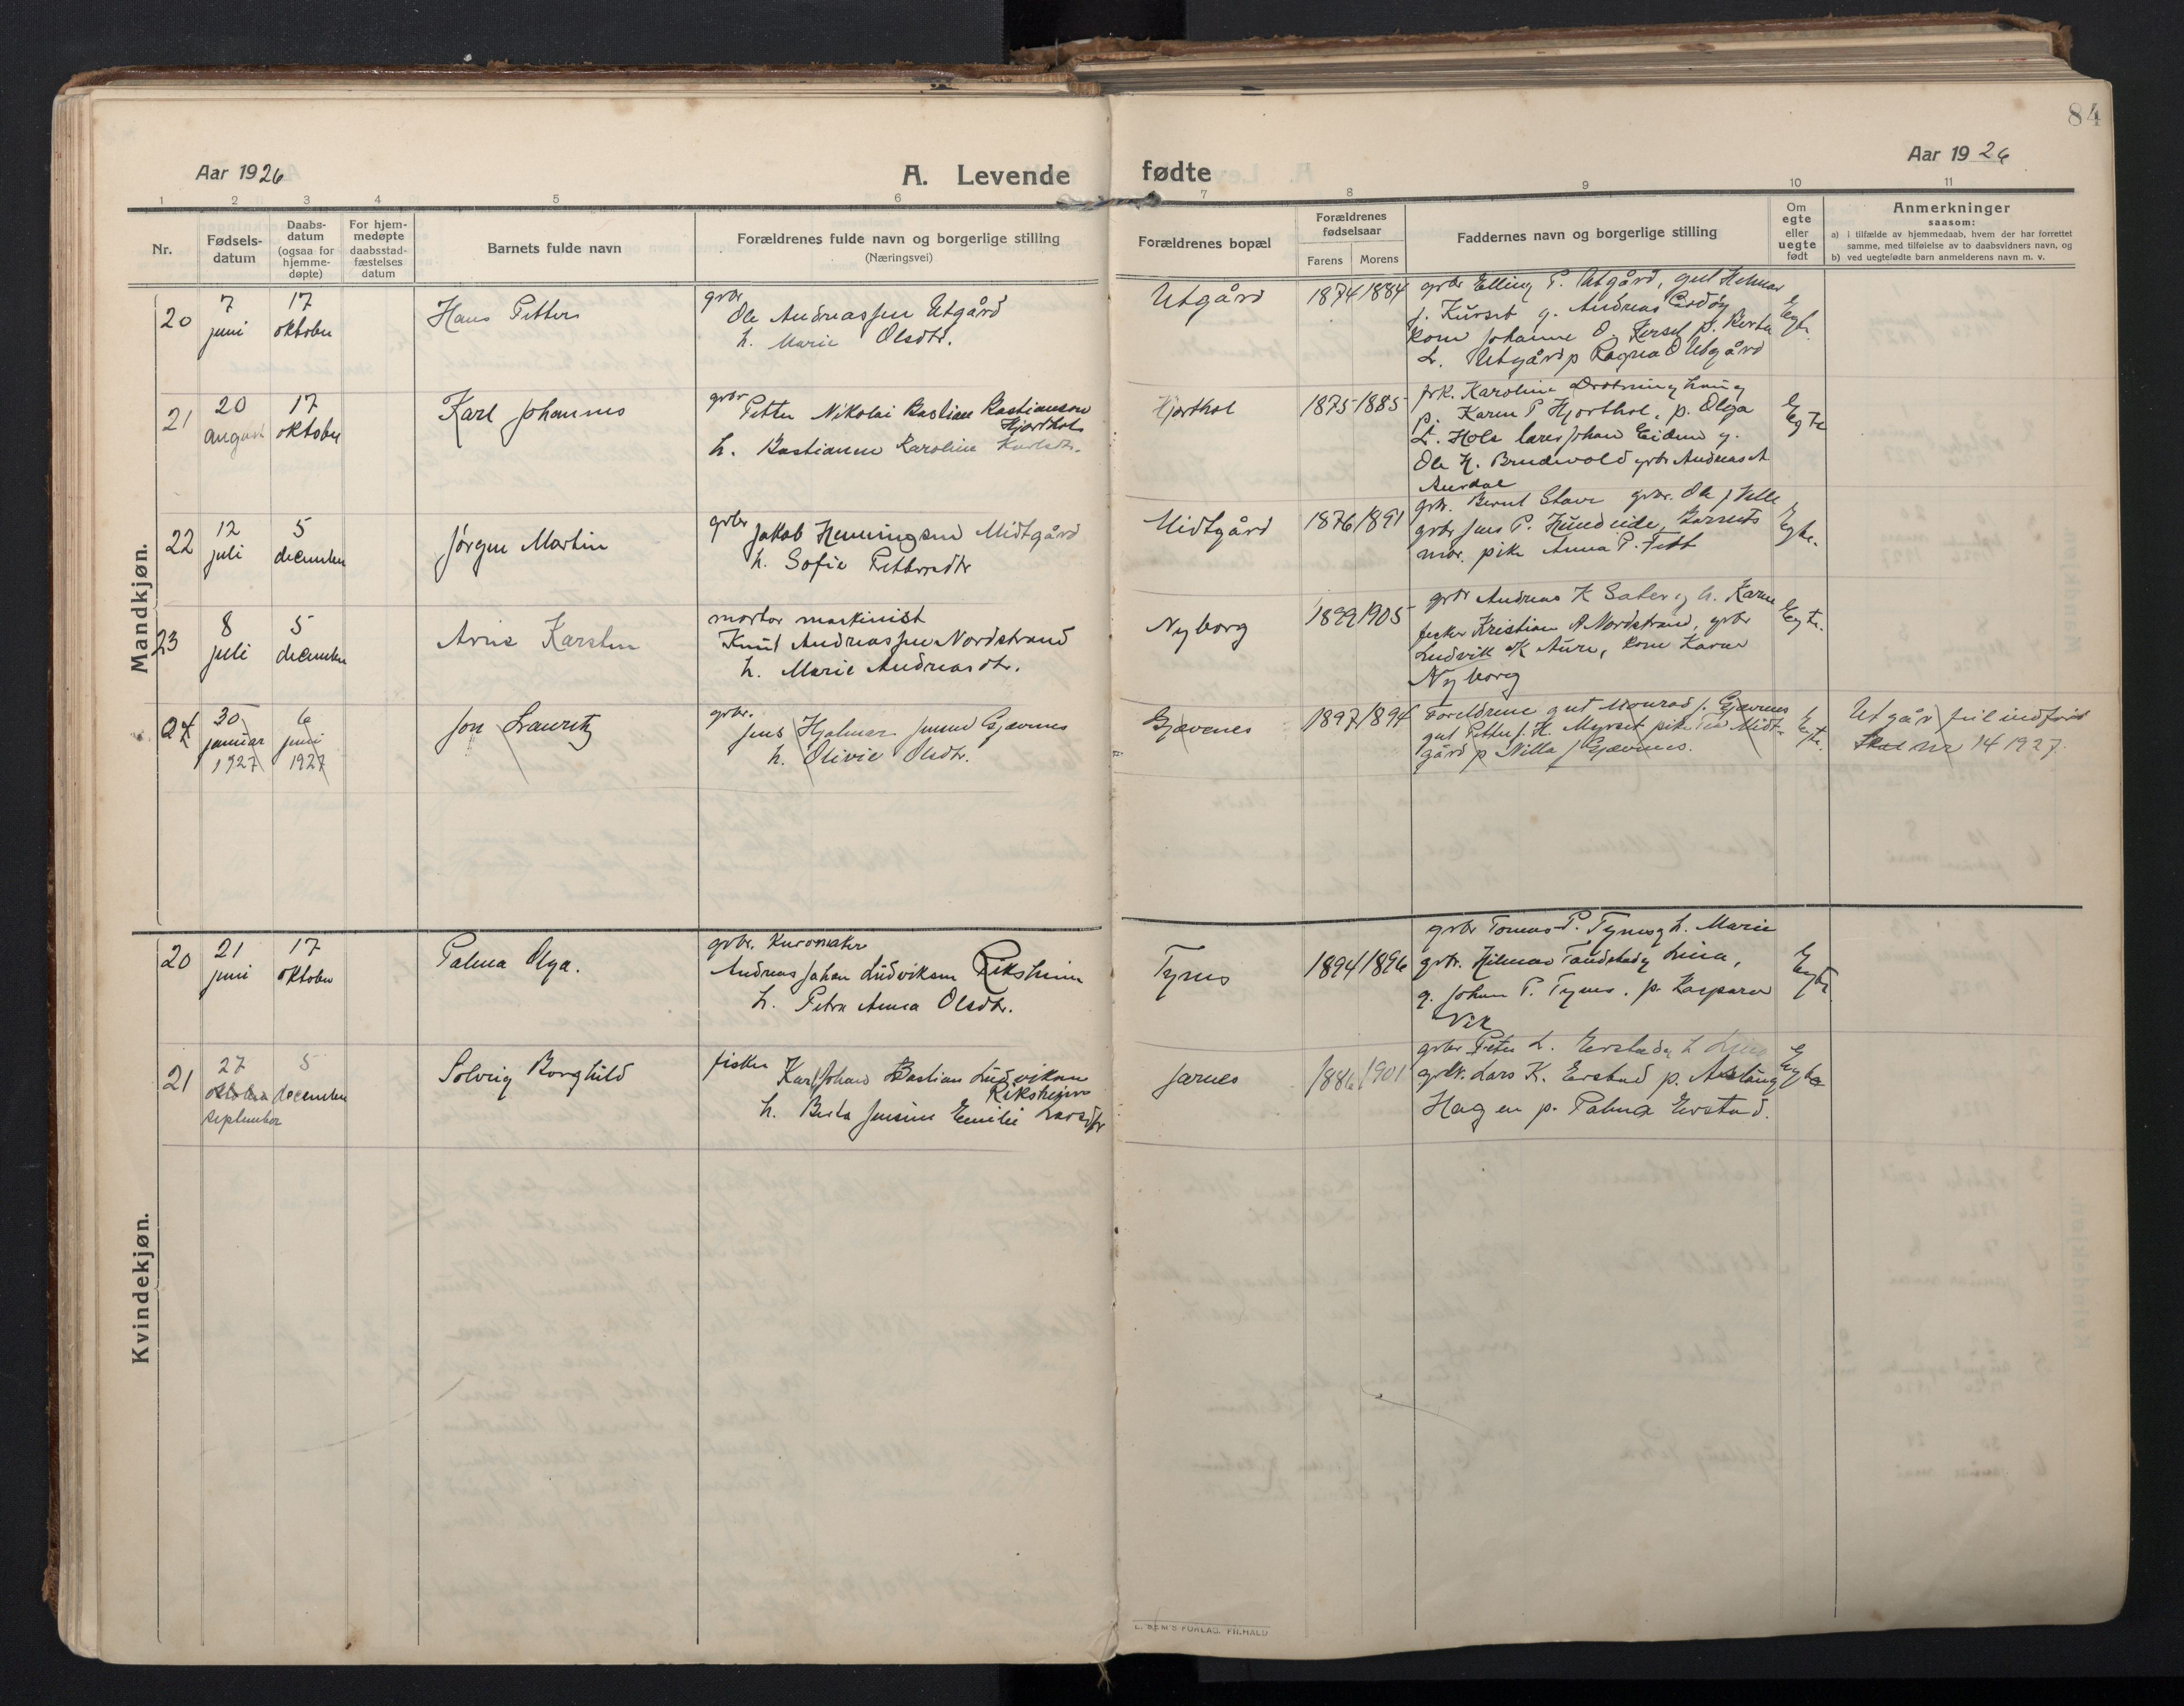 84
Aar 1926
A. Levende fødte
Aar 1926
1 2 3 4 5 6 7 8 9 10 11
Nr.
Fødsels-
datum
Daabs-
datum
(ogsaa for
hjemme-
døpte)
For hjem-
medøpte
daabsstad-
fæstelses
datum
Barnets fulde navn
Forældrenes fulde navn og borgerlige stilling
(Næringsvei)
Forældrenes bopæl
Forældrenes
fødselsaar
Farens Morens
Faddernes navn og borgerlige stilling
Om
egte
eller
uegte
født
Anmerkninger
saasom:
a) i tilfælde av hjemmedaab, hvem der har forrettet
samme, med tilføielse av to daabsvidners navn, og
b) ved uegtefødte barn anmelderens navn m. v.
Mandkjøn.
20
7
juni
17
oktober
Hans Petter
grbr
Ole Andreassen Utgård
h. Marie Olsdtr.
Utgård
1874 1884
grbr Elling P. Utgård, gut Helmer
J. Kurset g. Andreas
kone Johanne O. p. Berta
L. Utgård p Ragna O Utgård
Egte
21
20
august
17
oktober
Karl Johannes
grbr
Petter Nikolai Bastian Bastiansen
Hjorthol
h. Bastianne Karoline Karlsdtr.
Hjorthol
1875 1885
frk. Karoline Drotninghaug
p. Karen P Hjorthol, p. Olga
L. Hole lærer Johan Eidem g.
Ole K. Brudevold grbr Andreas A
Aurdal
Egte
22
12
juli
5
december
Jørgen Martin
grbr
Jakob Henningsen Midtgård
h. Sofie
Midtgård
1876 1891
grbr. Bernt Stave grbr. Ole J Velle
grbr Jens P. Hundeide, Barnets
mor. pike Anna P. Fett
Egte.
23
8
juli
5
december
Arne Karsten
mortor maskinist
Knut Andreassen Nordstrand
h. Marie Andreasdtr.
Nyborg
1899 1905
grbr Andreas K Sater og h. Karen
fisker Kristian A Nordstrand, grbr
Ludvik K Aure, kone Karen
Nyborg
Egte.
24
30
januar
1927
6
juni
1927
Jon Lauritz
grbr.
Jens Hjalmar Jensen Gjævenes
h. Olivie Olsdtr.
Gjævenes
1897 1894
Foreldrene gut Monrad J. Gjævenes
gut Petter J. K. Myrset pike Midt-
gård p Nilla J Gjævenes.
Egte.
Utgår feil indført
Skal nr 14 1927.
Kvindekjøn.
20
21
juni
17
oktober
Palma Olga.
grbr.
Andreas Johan Ludviksen Riksheim
h. Petra Anna Olsdtr.
Tynes
1894 1896
grbr Tomas P. Tynes og h. Marie
grbr. Hilmar Tandstad og Lina,
g. Johan P. Tynes. p. Kaspara
Vik
Egte
21
27
oktober
september
5
december
Solveig Borghild
fisker
Karl Johan Bastian Ludviksen
Riksheim
h. Berta Jensine Emilie Larsdtr
Jarnes
1886 1901
grbr Peter L. Erstad og h Lina
grbr. Lars K. Erstad p. Aslaug
Hagen p. Palma Erstad.
Egte